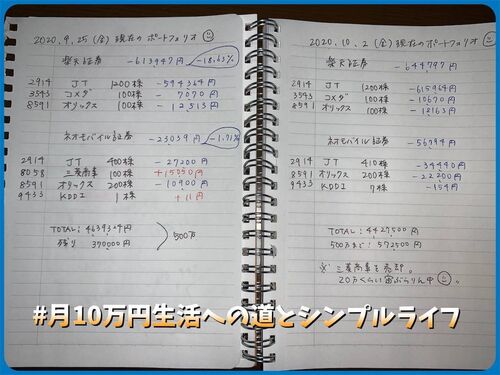 2020.9.25(金)現在のポートフォリオ
楽天証券
-613947円 -18.63%
2914 JT 1200株 -594364円
3543 コメダ 100株 -7070円
8591 オリックス 100株 -12513円
ネオモバイル証券 -23039円 -1.71%
2914 JT 400株 -27200円
8058 三菱商事 100株 +15050円
8591 オリックス 200株 -10900円
9433 KDDI 1株 +11円
TOTAL:4639329円
残り 370000円
500万
2020.10.2(金)現在のポートフォリオ
楽天証券 -644797円
2914 JT 1200株 -615964円
3543 コメダ 100株 -10670円
8591 オリックス 100株 -18163円
ネオモバイル証券 -56794円
2914 JT 410株 -34440円
8591 オリックス 200株 -22200円
9433 KDDI 7株 -154円
TOTAL:4427500円
500万まで:572500円
※三菱商事を売却。
20万くらい宙ぶらりん中
#月10万円生活への道とシンプルライフ